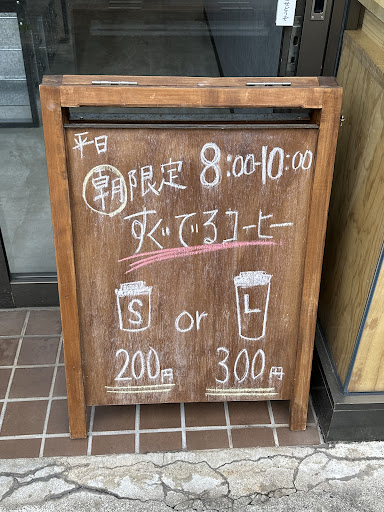 平日
朝限定 8:00-10:00
すぐでるコーヒー
S or L
200円 300円